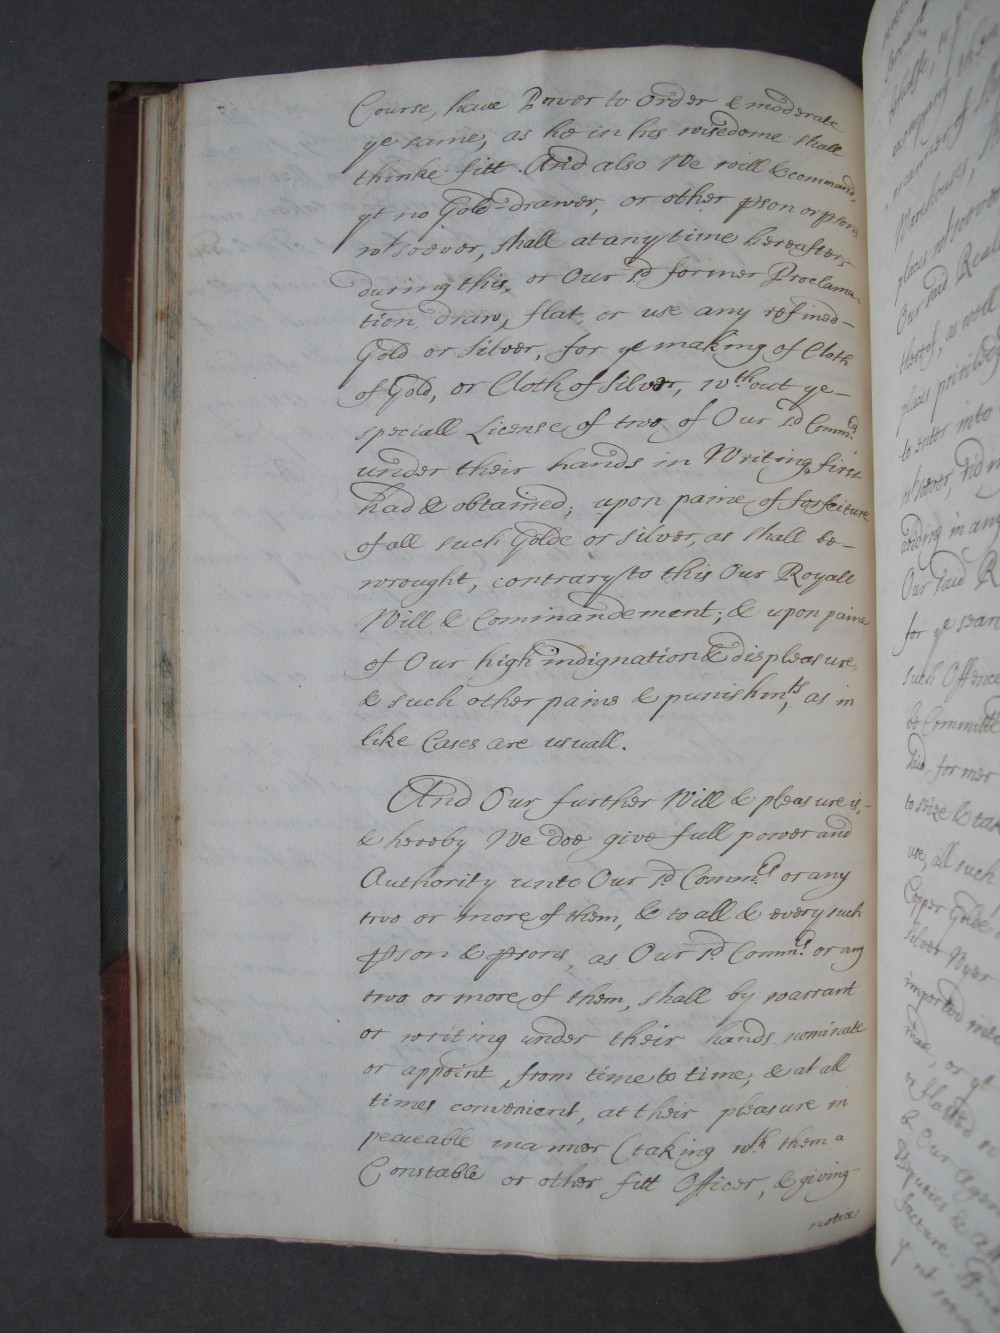 Course, have Power to order & moderate
ye same, as he in his wisedome shall
thinke fitt. And also We will & command,
yt no Gold-drawer, or other pson or psons
wtsoever, shall at any time hereafter,
during this, or Our sd former Proclama-
tion, draw, flat, or use any refined-
Gold or Silver, for ye making of Cloth
of Gold, or Cloth of Silver, wth.out ye-
speciall License of two of Our sd Comm.rs
under their hands in Writing first
had & obtained; upon paine of forfeiture
of all such Golde or Silver, as shall be-
wrought, contrary to this Our Royall
Will & Commandement; & upon paine
of Our high indignation & displeasure,
& such other paine & punishmts, as in
like Cases are usuall.
And Our further Will & pleasure is,-
& hereby We doe give full power and
Authority unto Our sd Comm.rs or any
two or more of them, & to all & every such
pson & psons, as Our sd Comm.rs or any
two or more of them, shall by warrant
or writing under their hands nominate
or appoint, from time to time, & at all
times convenient, at their pleasure in
peaceable manner (taking wth them a
Constable or other fitt Officer, & giving-
notice
Warehouses,
places wtsoever
Our said
thereof, as well
places priviledg
to enter into
abiding in any
Our said R
for ye sear
such Offence
be Committ
said former
to seize & tak
use, all such
Copper Golde
Silver Wyer
imported into
or flatted
by Our Agen
Deputies & A
facture.